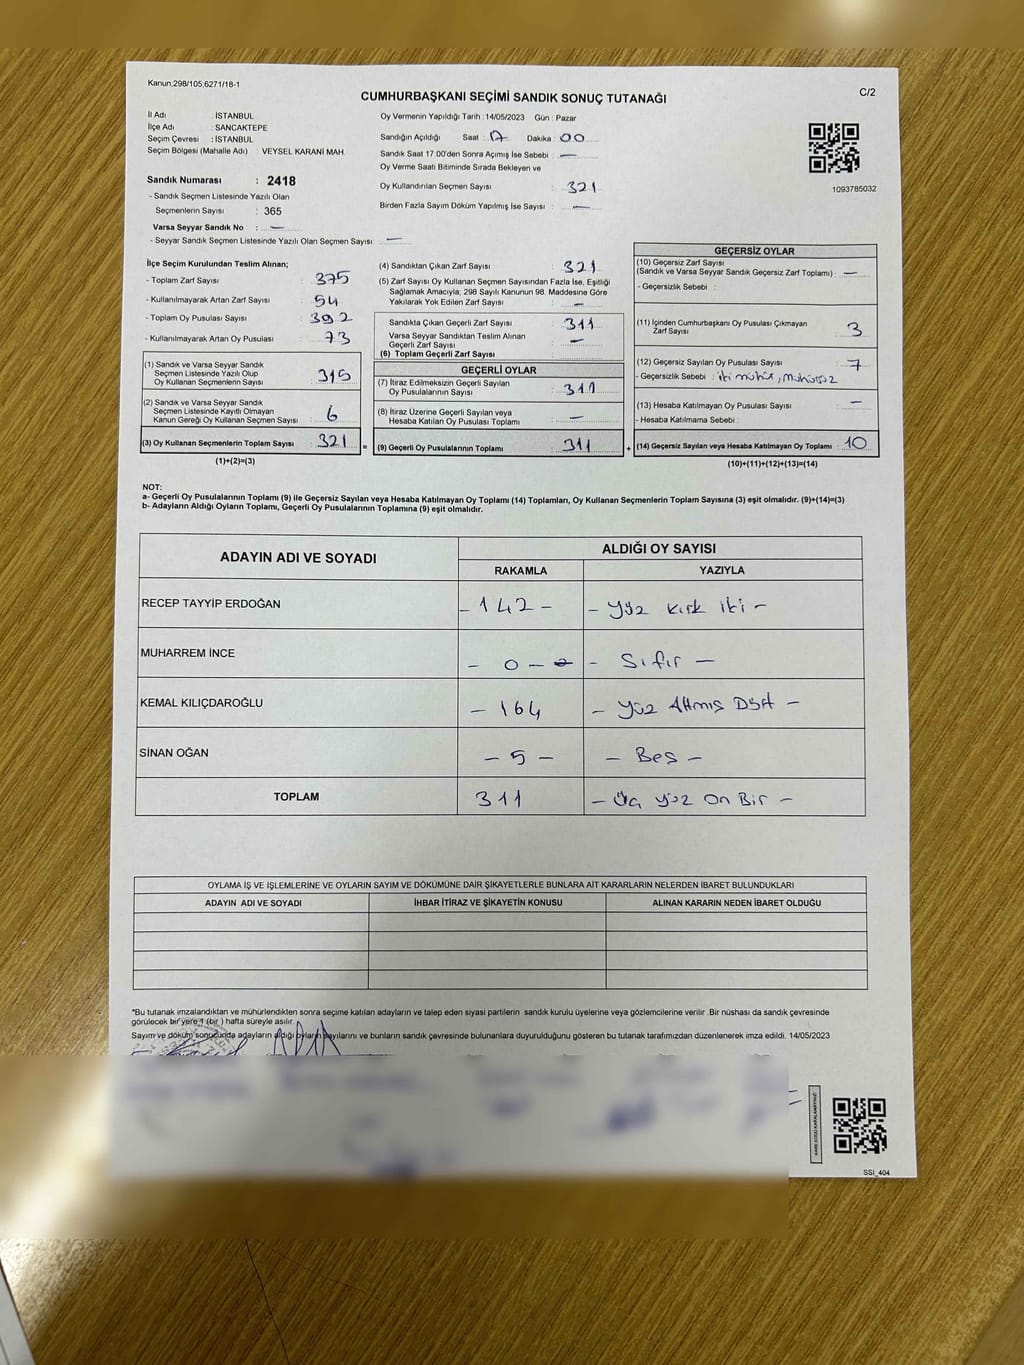 Kanun,298/105;6271/18-1
C/2
CUMHURBAŞKANI SEÇİMİ SANDIK SONUÇ TUTANAĞI
İl Adı : İSTANBUL
İlçe Adı : SANCAKTEPE
Seçim Çevresi : İSTANBUL
Seçim Bölgesi (Mahalle Adı) : VEYSEL KARANİ MAH.
Sandık Numarası : 2418
- Sandık Seçmen Listesinde Yazılı Olan
Seçmenlerin Sayısı : 365
Varsa Seyyar Sandık No : —
- Seyyar Sandık Seçmen Listesinde Yazılı Olan Seçmen Sayısı: —
Oy Vermenin Yapıldığı Tarih : 14/05/2023 Gün : Pazar
Sandığın Açıldığı Saat : 17 Dakika : 00
Sandık Saat 17:00'den Sonra Açımış İse Sebebi : —
Oy Verme Saati Bitiminde Sırada Bekleyen ve
Oy Kullandırılan Seçmen Sayısı : 321
Birden Fazla Sayım Döküm Yapılmış İse Sayısı : —
1093785032
İlçe Seçim Kurulundan Teslim Alınan;
- Toplam Zarf Sayısı : 375
- Kullanılmayarak Artan Zarf Sayısı : 54
- Toplam Oy Pusulası Sayısı : 392
- Kullanılmayarak Artan Oy Pusulası : 73
(1) Sandık ve Varsa Seyyar Sandık
Seçmen Listesinde Yazılı Olup
Oy Kullanan Seçmenlerin Sayısı : 315
(2) Sandık ve Varsa Seyyar Sandık
Seçmen Listesinde Kayıtlı Olmayan
Kanun Gereği Oy Kullanan Seçmen Sayısı : 6
(3) Oy Kullanan Seçmenlerin Toplam Sayısı : 321
(1)+(2)=(3)
(4) Sandıktan Çıkan Zarf Sayısı : 321
(5) Zarf Sayısı Oy Kullanan Seçmen Sayısından Fazla İse, Eşitliği
Sağlamak Amacıyla; 298 Sayılı Kanunun 98. Maddesine Göre
Yakılarak Yok Edilen Zarf Sayısı : —
Sandıkta Çıkan Geçerli Zarf Sayısı : 311
Varsa Seyyar Sandıktan Teslim Alınan
Geçerli Zarf Sayısı : —
(6) Toplam Geçerli Zarf Sayısı :
GEÇERLİ OYLAR
(7) İtiraz Edilmeksizin Geçerli Sayılan
Oy Pusulalarının Sayısı : 311
(8) İtiraz Üzerine Geçerli Sayılan veya
Hesaba Katılan Oy Pusulası Toplamı : —
= (9) Geçerli Oy Pusulalarının Toplamı : 311
GEÇERSİZ OYLAR
(10) Geçersiz Zarf Sayısı
(Sandık ve Varsa Seyyar Sandık Geçersiz Zarf Toplamı) : —
- Geçersizlik Sebebi :
(11) İçinden Cumhurbaşkanı Oy Pusulası Çıkmayan
Zarf Sayısı : 3
(12) Geçersiz Sayılan Oy Pusulası Sayısı : 7
- Geçersizlik Sebebi : iki mühür, mühürsüz
(13) Hesaba Katılmayan Oy Pusulası Sayısı : —
- Hesaba Katılmama Sebebi :
+ (14) Geçersiz Sayılan veya Hesaba Katılmayan Oy Toplamı : 10
(10)+(11)+(12)+(13)=(14)
NOT:
a- Geçerli Oy Pusulalarının Toplamı (9) ile Geçersiz Sayılan veya Hesaba Katılmayan Oy Toplamı (14) Toplamları, Oy Kullanan Seçmenlerin Toplam Sayısına (3) eşit olmalıdır. (9)+(14)=(3)
b- Adayların Aldığı Oyların Toplamı, Geçerli Oy Pusulalarının Toplamına (9) eşit olmalıdır.
ADAYIN ADI VE SOYADI ALDIĞI OY SAYISI
RAKAMLA YAZIYLA
RECEP TAYYİP ERDOĞAN - 142 - - Yüz kırk iki -
MUHARREM İNCE - 0 - - Sıfır -
KEMAL KILIÇDAROĞLU - 164 - Yüz Altmış Dört -
SİNAN OĞAN - 5 - - Beş -
TOPLAM 311 - Üç yüz On Bir -
OYLAMA İŞ VE İŞLEMLERİNE VE OYLARIN SAYIM VE DÖKÜMÜNE DAİR ŞİKAYETLERLE BUNLARA AİT KARARLARIN NELERDEN İBARET BULUNDUKLARI
ADAYIN ADI VE SOYADI İHBAR İTİRAZ VE ŞİKAYETİN KONUSU ALINAN KARARIN NEDEN İBARET OLDUĞU
*Bu tutanak imzalandıktan ve mühürlendikten sonra seçime katılan adayların ve talep eden siyasi partilerin sandık kurulu üyelerine veya gözlemcilerine verilir .Bir nüshası da sandık çevresinde
görülecek bir yere 1 (bir ) hafta süreyle asılır.
Sayım ve döküm sonucunda adayların aldığı oyların sayılarını ve bunların sandık çevresinde bulunanlara duyurulduğunu gösteren bu tutanak tarafımızdan düzenlenerek imza edildi. 14/05/2023
SSI_404